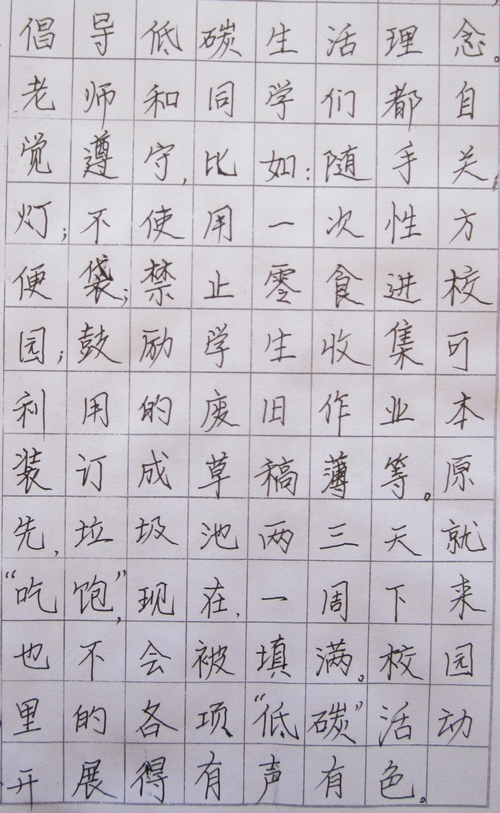 倡导低碳生活理念。
老师和同学们都自
觉遵守,比如:随手关
灯;不使用一次性方
便袋;禁止零食进校
园;鼓励学生收集可
利用的废旧作业本
装订成草稿薄等。原
先,垃圾池两三天就
“吃饱”,现在,一周下来
也不会被填满。校园
里的各项“低碳”活动
开展得有声有色。